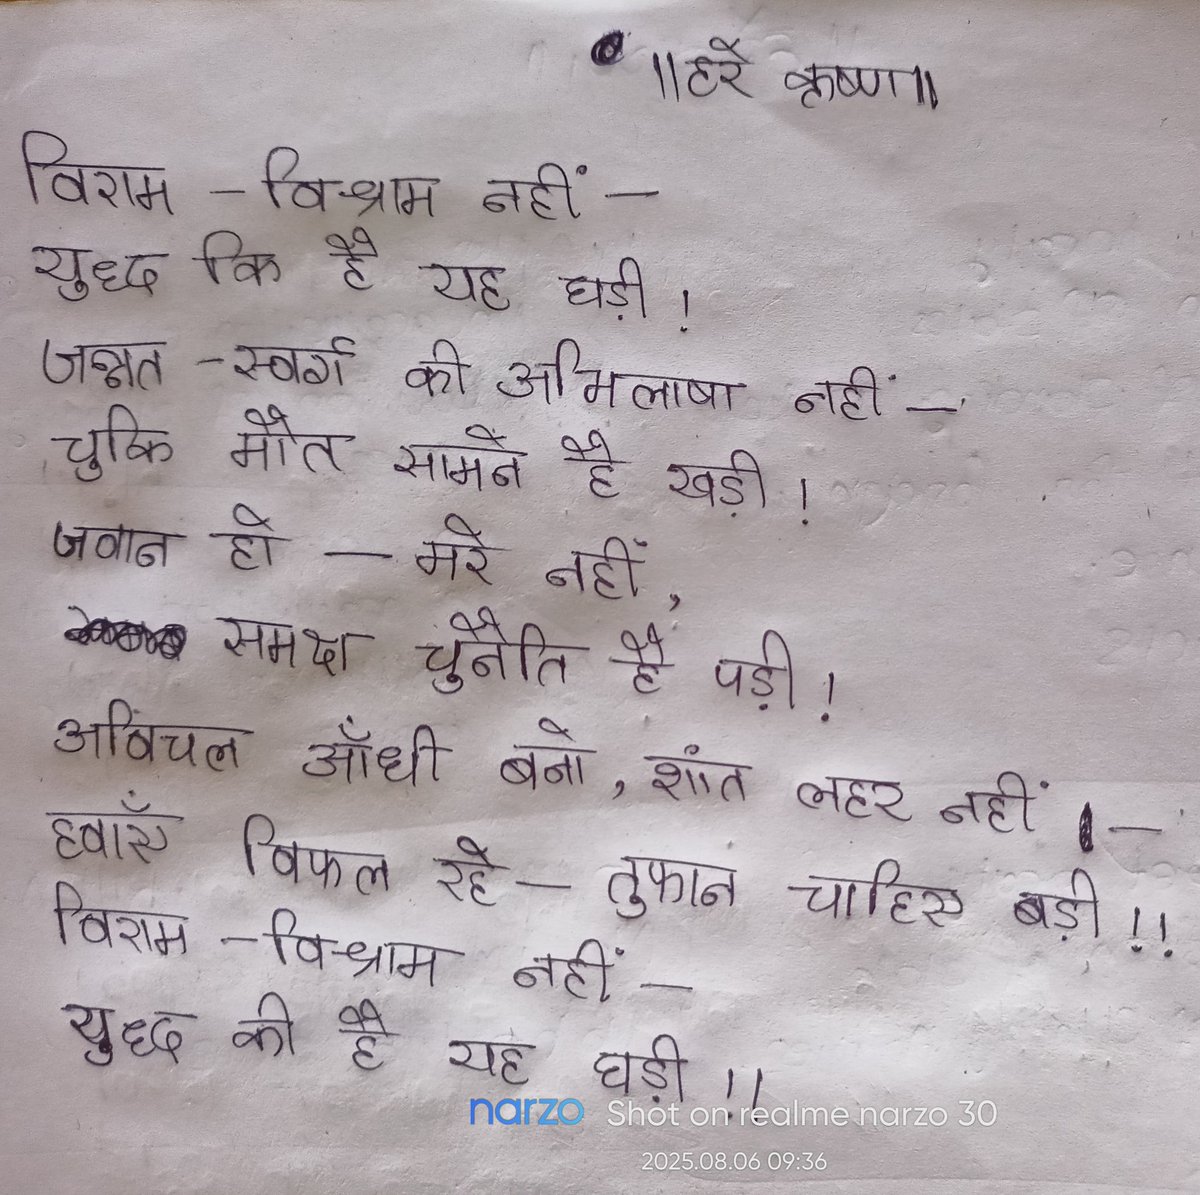 ॥हरे कृष्ण॥
विराम - विश्राम नहीं -
युध्द कि है यह घड़ी !
जन्नत - स्वर्ग की अभिलाषा नहीं -
चुकि मौत सामने है खड़ी !
जवान हो - मरे नहीं,
समक्ष चुनौति है पड़ी !
अविचल आँधी बनो, शांत लहर नहीं -
हवाएँ विफल रहे - तुफान चाहिए बड़ी !!
विराम - विश्राम नहीं -
युध्द की है यह घड़ी !!
narzo Shot on realme narzo 30
2025.08.06 09:36